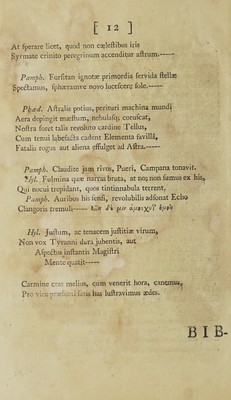 [ 12 ]
At sperare licet, quod non cælestibus iris
Syrmate crinito peregrinum accenditur astrum.-----
Pamph. Forsitan ignotæ primordia fervida stellæ
Spectamus, sphæramve novo lucescere sole.-----
Phæd. Astralis potius, perituri machina mundi
Aera depingit mæstum, nebulasq; coruscat,
Nostra foret talis revoluto cardine Tellus,
Cum tenui labefacta cadent Elementa favillâ,
Fatalis rogus aut aliena effulget ad Astra.-----
Pamph. Claudite jam rivos, Pueri, Campana tonavit.
Hyl. Fulmina quæ narras bruta, at nos non sumus ex his,
Qui nocui trepidant, quos tintinnabula terrent.
Pamph. Auribus his sensi, revolubilis adfonat Echo
Clangoris tremuli-----
Hyl. Justum, ac tenacem justitiæ virum,
Non vox Tyranni dura jubentis, aut
Aspectus instantis Magistri
Mente quatit-----
Carmine cras melius, cum venerit hora, canemus,
Pro vice præsenti satis has lustravimus ædes.
BIB-